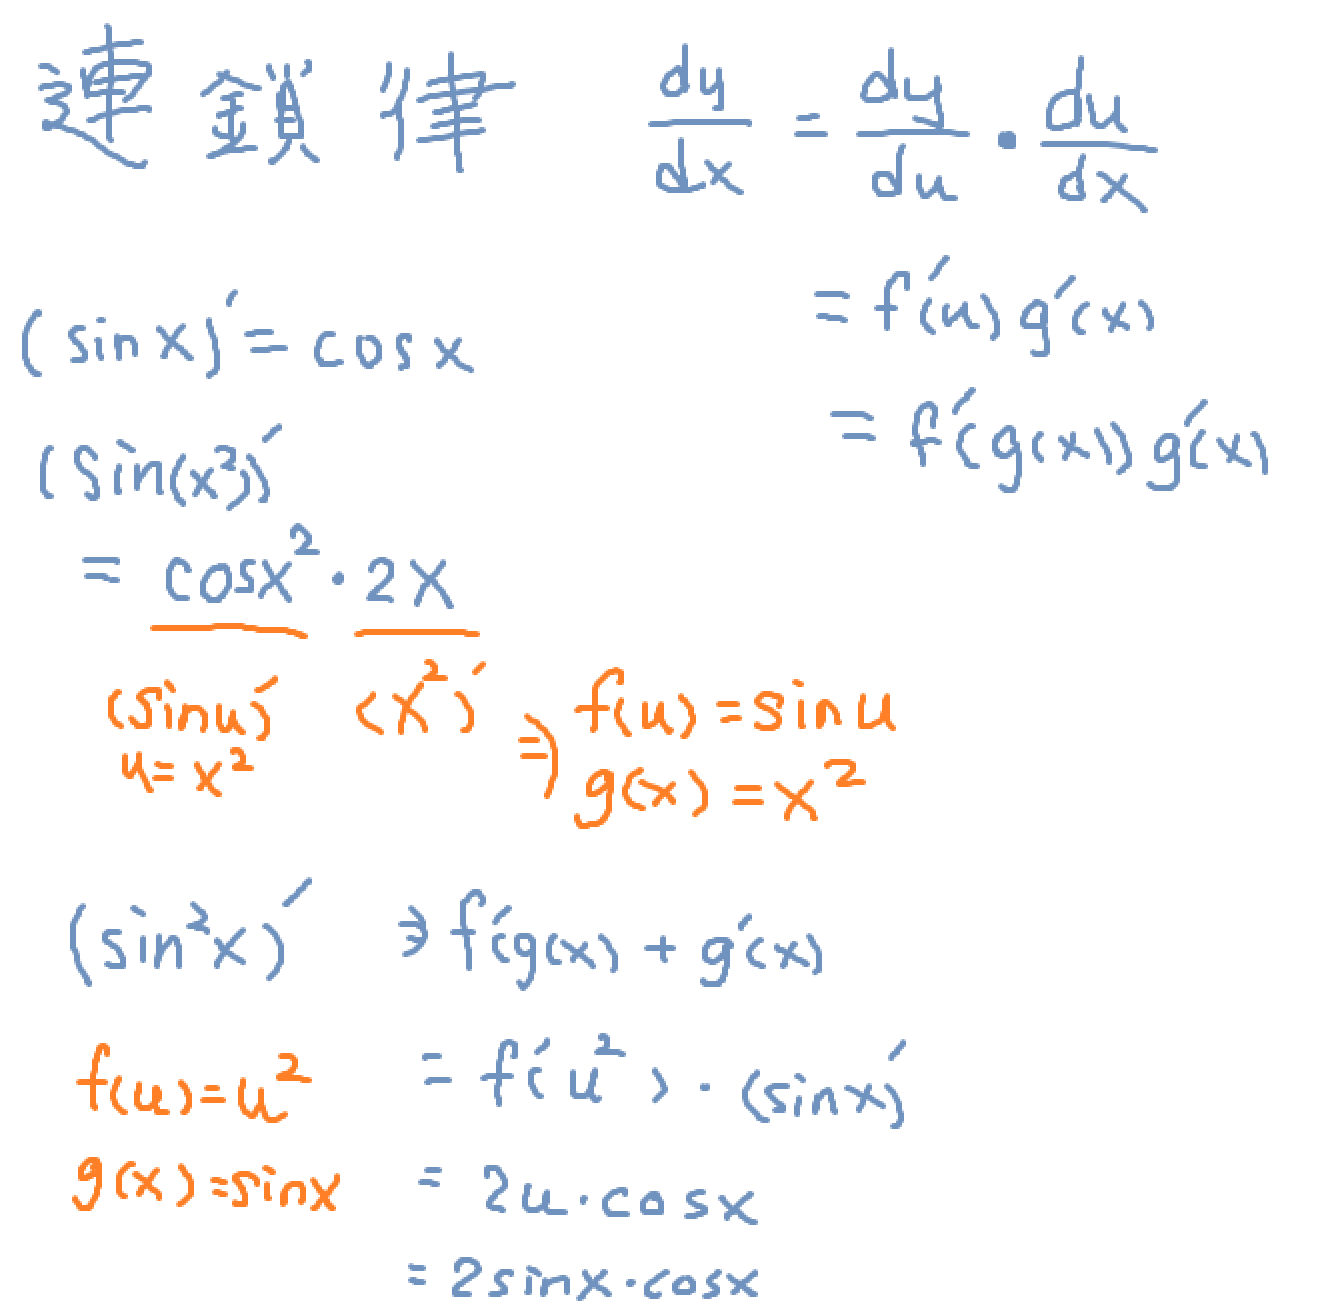 連鎖律 dy/dx = dy/du · du/dx
= f'(u) g'(x)
= f'(g(x)) g'(x)
(sin x)' = cos x
(Sin(x²))'
= cosx² · 2x
(Sinu)' (x²)' ⇒ f(u) = sin u
u = x² g(x) = x²
(sin²x)' ⇒ f'(g(x) + g'(x)
f(u) = u² = f'(u²) · (sinx)'
g(x) = sinx = 2u · cos x
= 2sinx · cosx